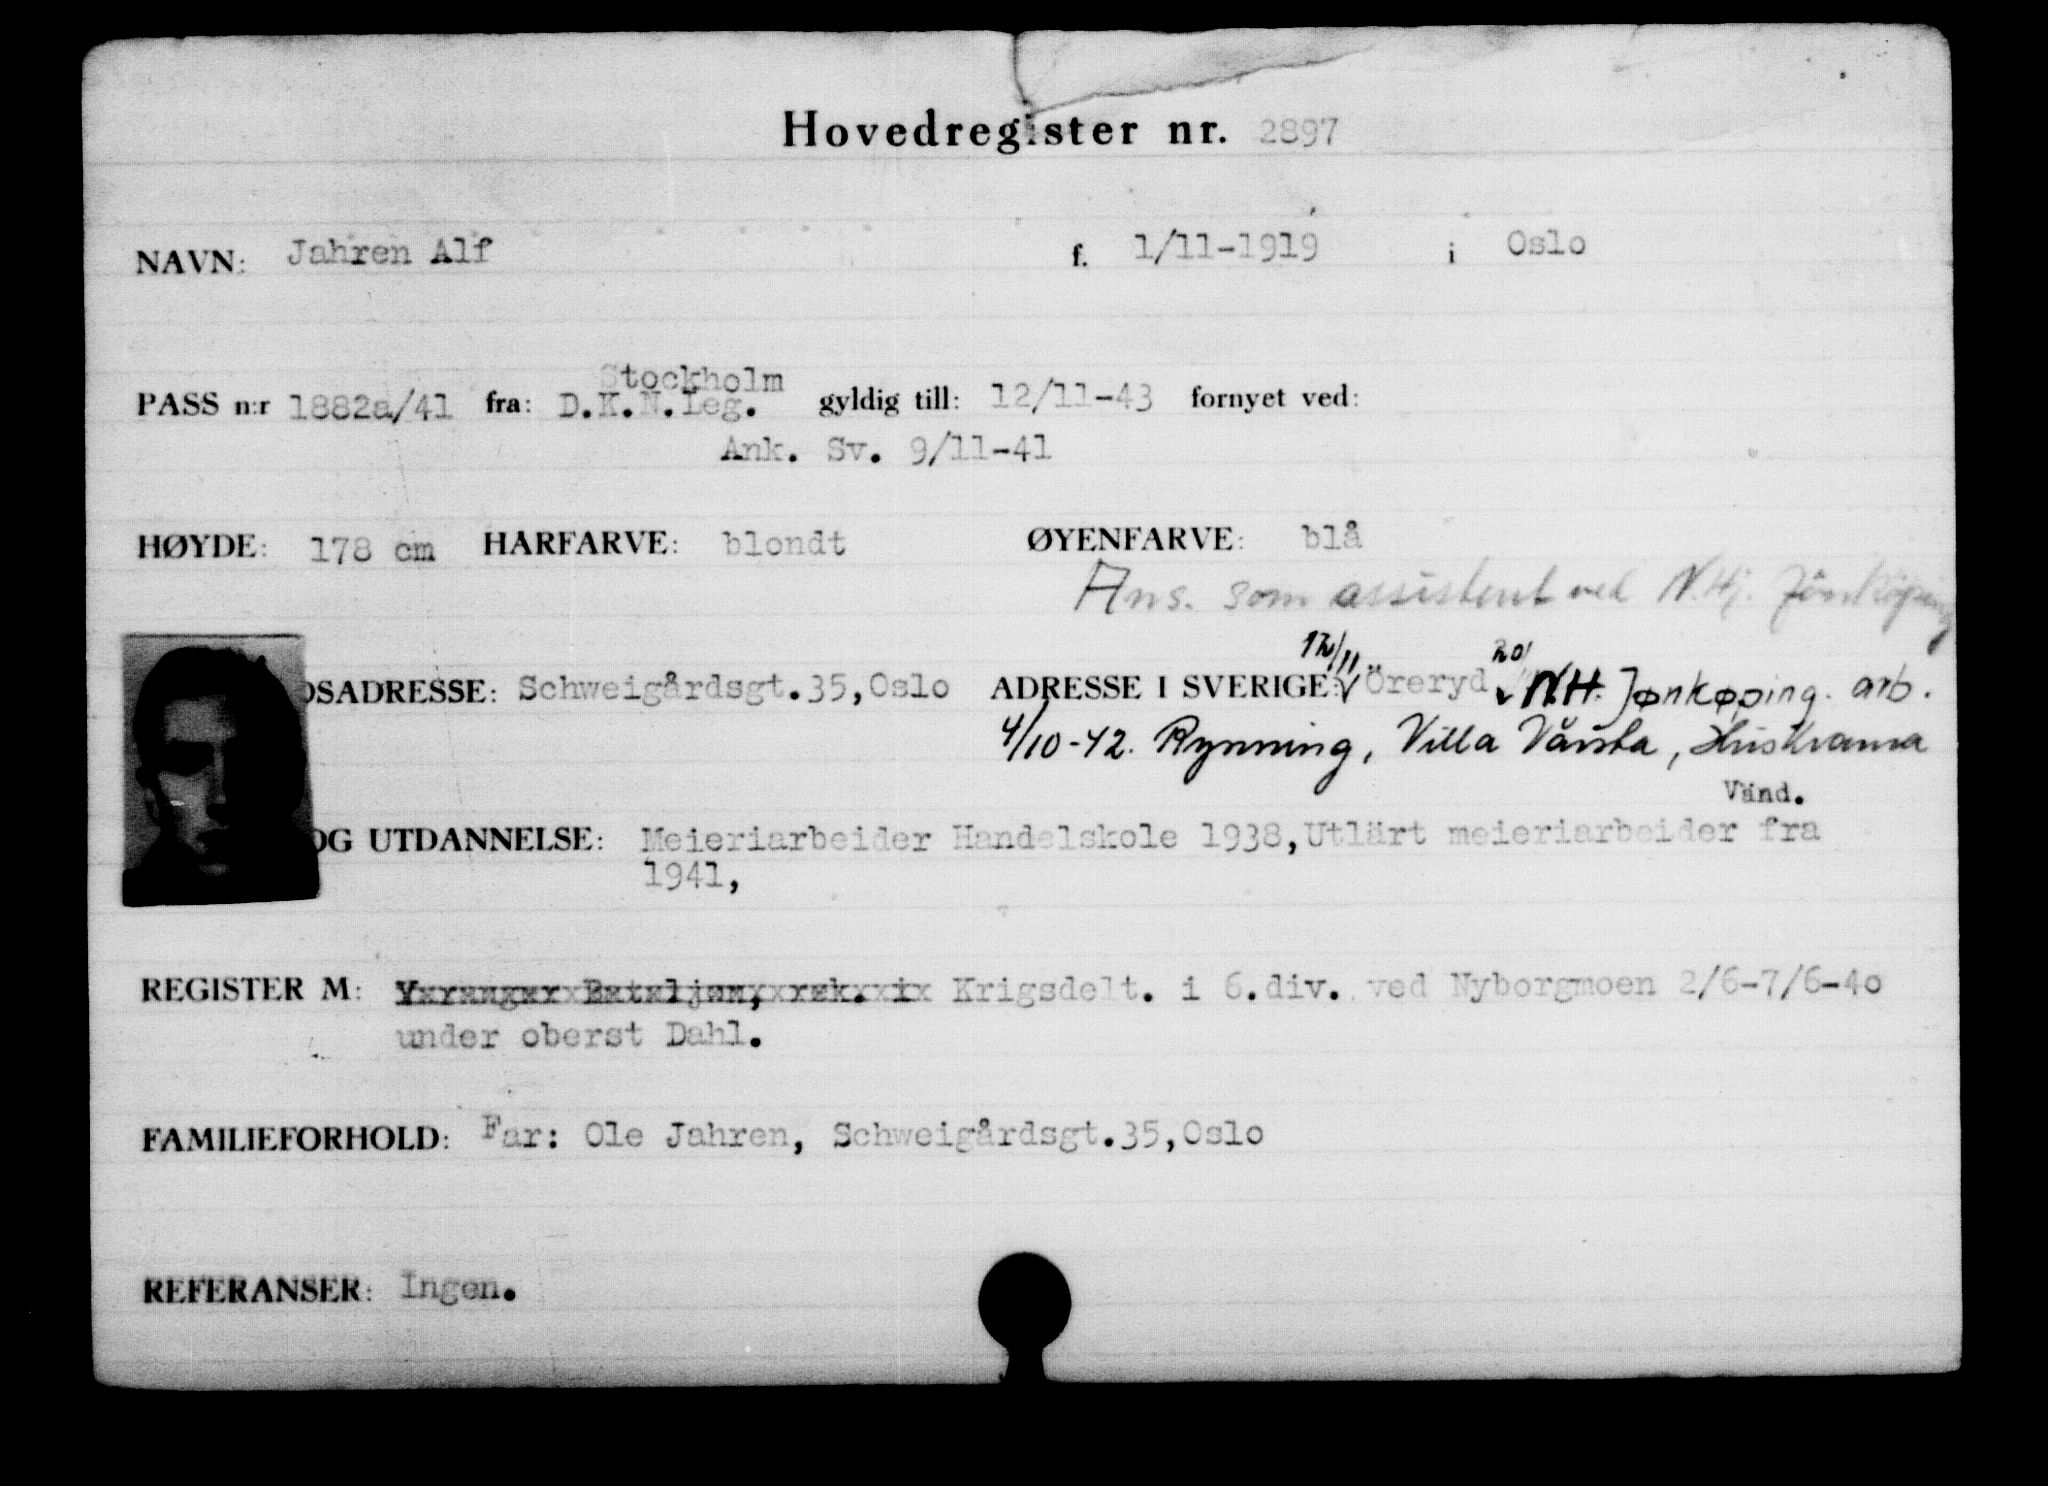 Hovedregister nr. 2897
NAVN: Jahren Alf f. 1/11-1919 i Oslo
Stockholm
PASS n:r 1882a/41 fra: D.K.N.Leg. gyldig till: 12/11-43 fornyet ved:
Ank. Sv. 9/11-41
HØYDE: 178 cm HARFARVE: blondt ØYENFARVE: blå
Ans. som assistent ved N.Hj. Jönköping
12/11 20/
OSADRESSE: Schweigårdsgt.35,Oslo ADRESSE I SVERIGE: Öreryd N.H. Jønkøping. arb.
4/10-42. Rynning, Villa Vårsta, Huskvarna
Vänd.
OG UTDANNELSE: Meieriarbeider Handelskole 1938,Utlärt meieriarbeider fra
1941,
REGISTER M: Varanger Bataljon, rek. i Krigsdelt. i 6.div. ved Nyborgmoen 2/6-7/6-4o
under oberst Dahl.
FAMILIEFORHOLD: Far: Ole Jahren, Schweigårdsgt.35,Oslo
REFERANSER: Ingen.